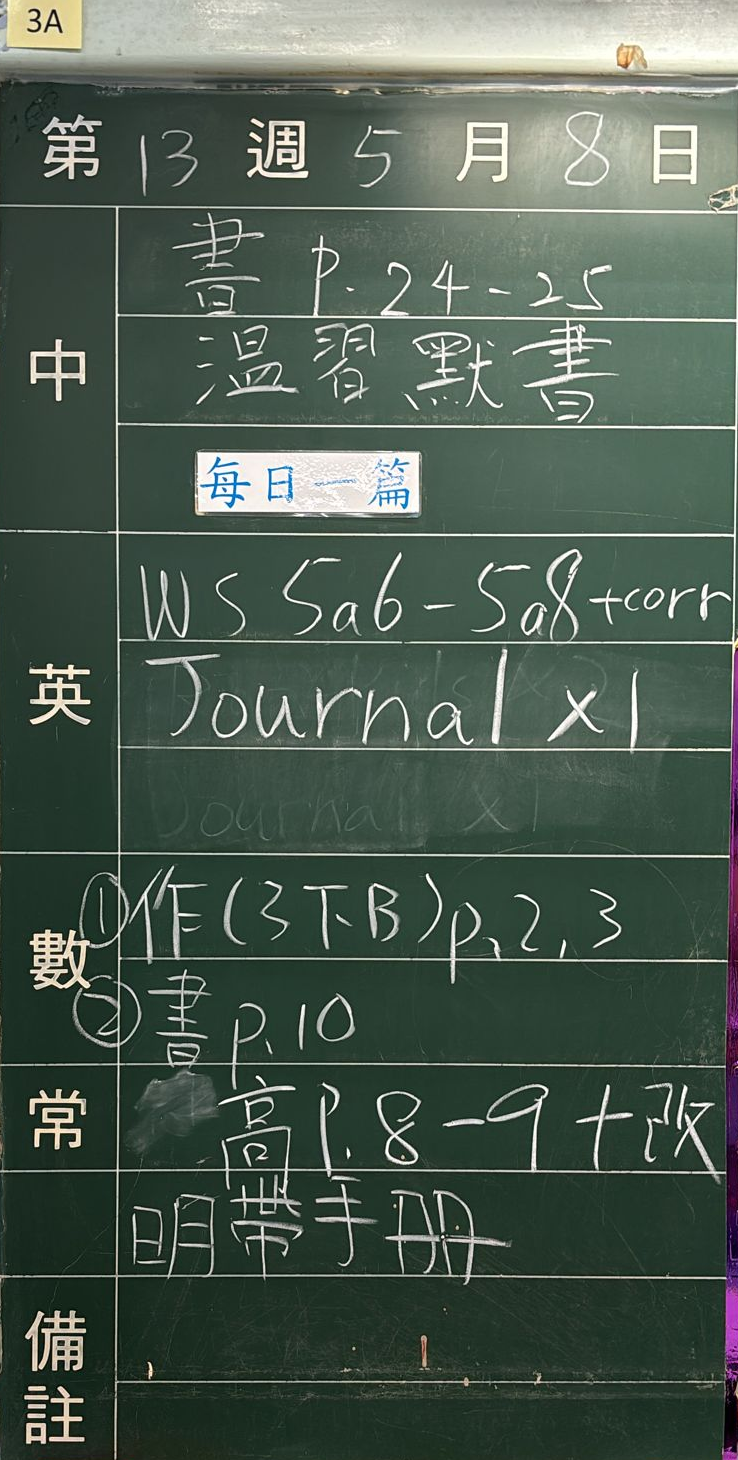 3A
第 13 週 5 月 8 日
中
書 P. 24-25
溫習默書
每日一篇
英
WS 5a6-5a8+corr
Journal x1
Journal x1
數
①作(3下B)p.2,3
②書p.10
常
高P.8-9+改
明帶手冊
備註